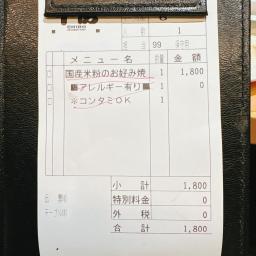 人 数 1
卓 番 99
メニュー名 数量 金 額
国産米粉のお好み焼 1 1,800
■アレルギー有り■ 1 0
※コンタミOK 1
小 計 1,800
特別料金 0
外 税 0
合 計 1,800